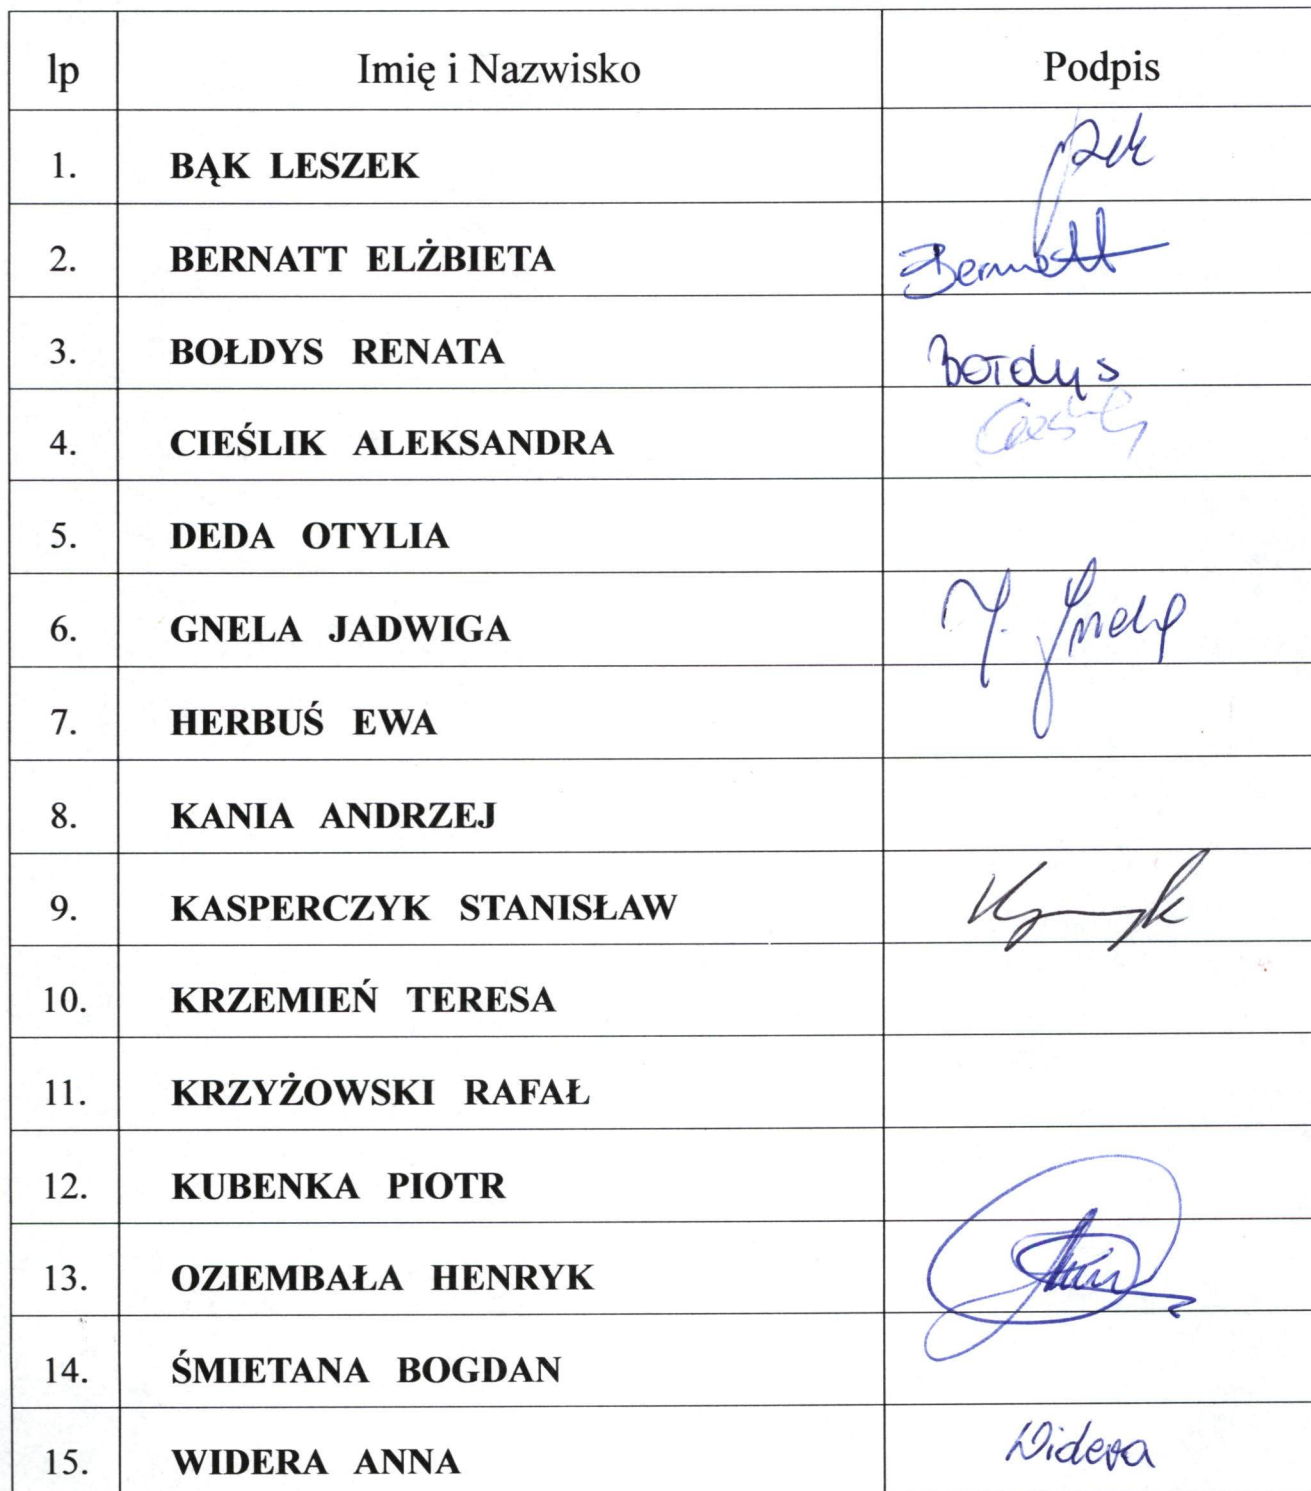 lp Imię i Nazwisko Podpis
1. BĄK LESZEK
2. BERNATT ELŻBIETA Bernatt
3. BOŁDYS RENATA Bołdys
4. CIEŚLIK ALEKSANDRA
5. DEDA OTYLIA
6. GNELA JADWIGA
7. HERBUŚ EWA
8. KANIA ANDRZEJ
9. KASPERCZYK STANISŁAW
10. KRZEMIEŃ TERESA
11. KRZYŻOWSKI RAFAŁ
12. KUBENKA PIOTR
13. OZIEMBAŁA HENRYK
14. ŚMIETANA BOGDAN
15. WIDERA ANNA Widera